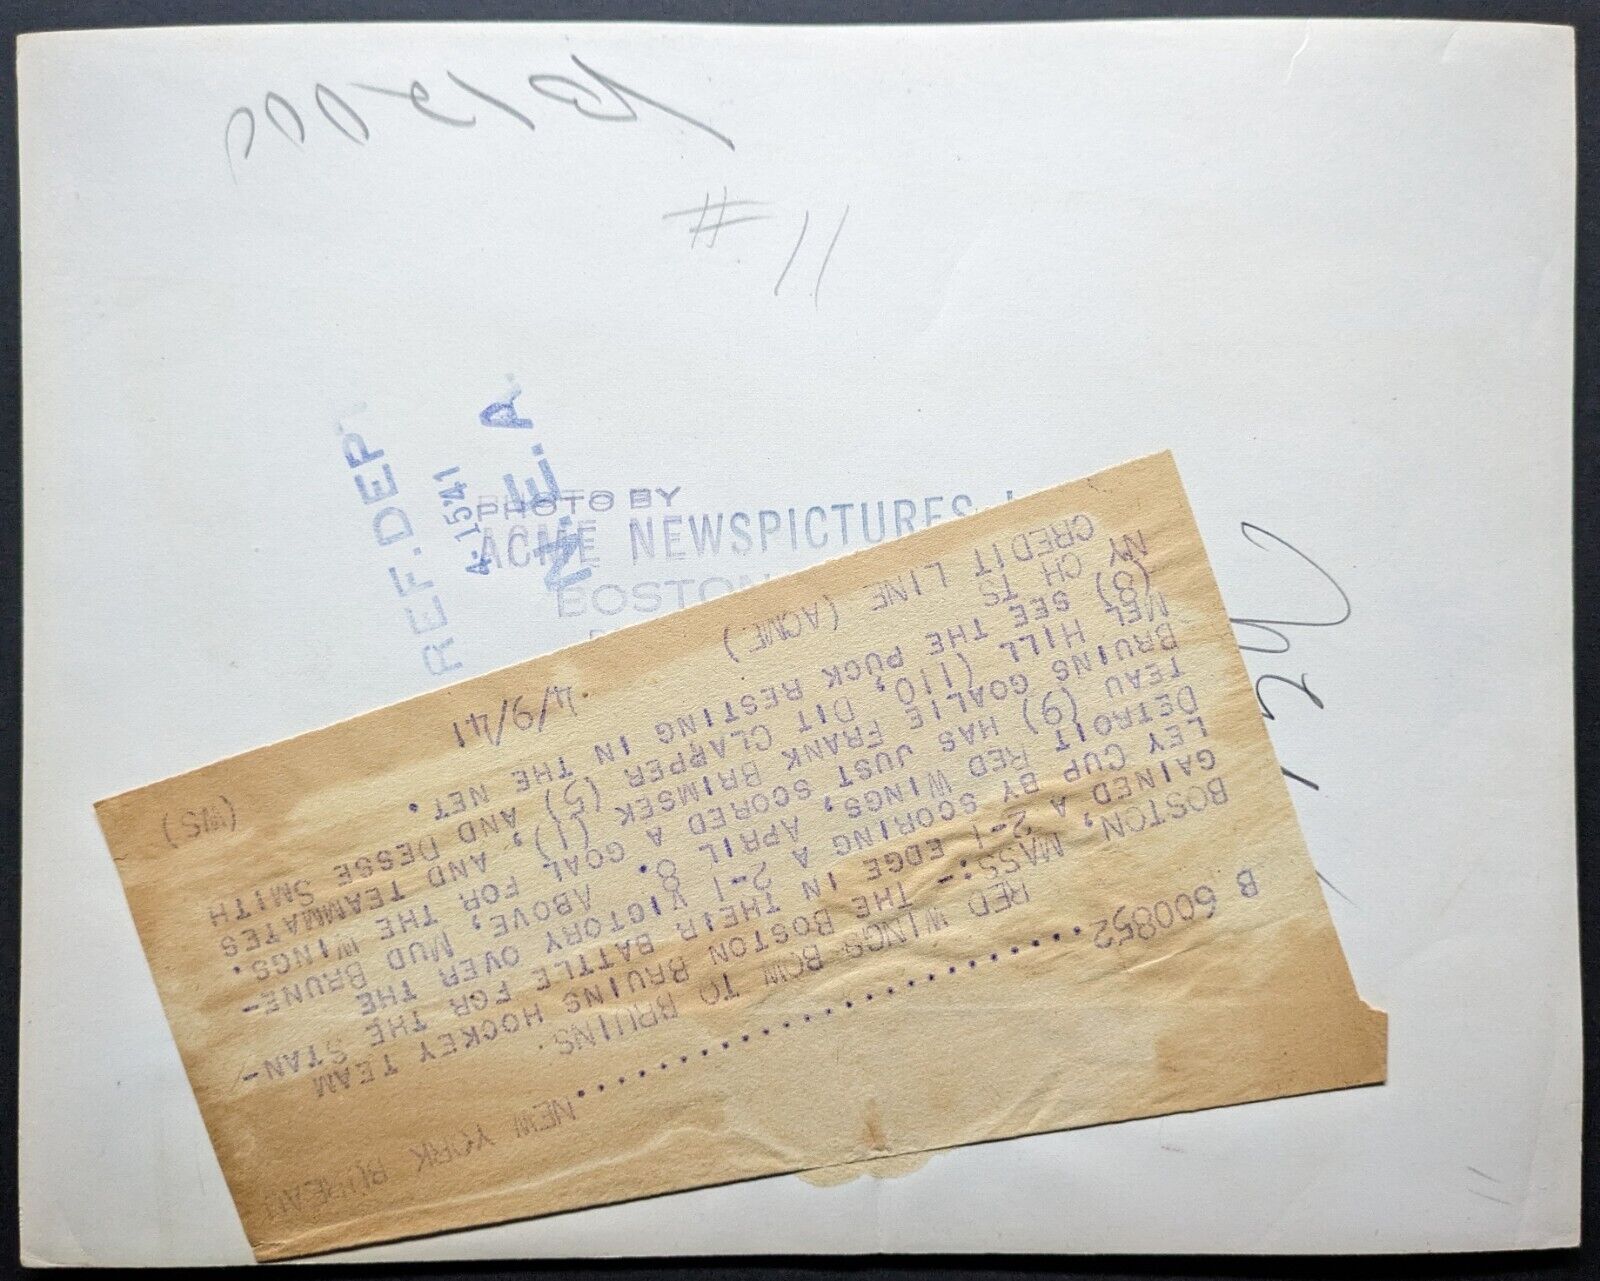 #11
REF. DEP
4-15-41
N.E.A.
PHOTO BY
ACME NEWSPICTURES
BOSTON
B 600852 ........................NEW YORK BUREAU
RED WINGS BOW TO BRUINS.
BOSTON, MASS:- THE BOSTON BRUINS HOCKEY TEAM
GAINED A 2-1 EDGE IN THEIR BATTLE FOR THE STAN-
LEY CUP BY SCORING A 2-1 VICTORY OVER THE
DETROIT RED WINGS, APRIL 8. ABOVE, MUD BRUNE-
TEAU (9) HAS JUST SCORED A GOAL FOR THE WINGS.
BRUINS GOALIE FRANK BRIMSEK (1), AND TEAMMATES
MEL HILL (110, DIT CLAPPER (5) AND DESSE SMITH
(8) SEE THE PUCK RESTING IN THE NET.
NY CH TS
CREDIT LINE (ACME) 4/9/41 (WS)
11